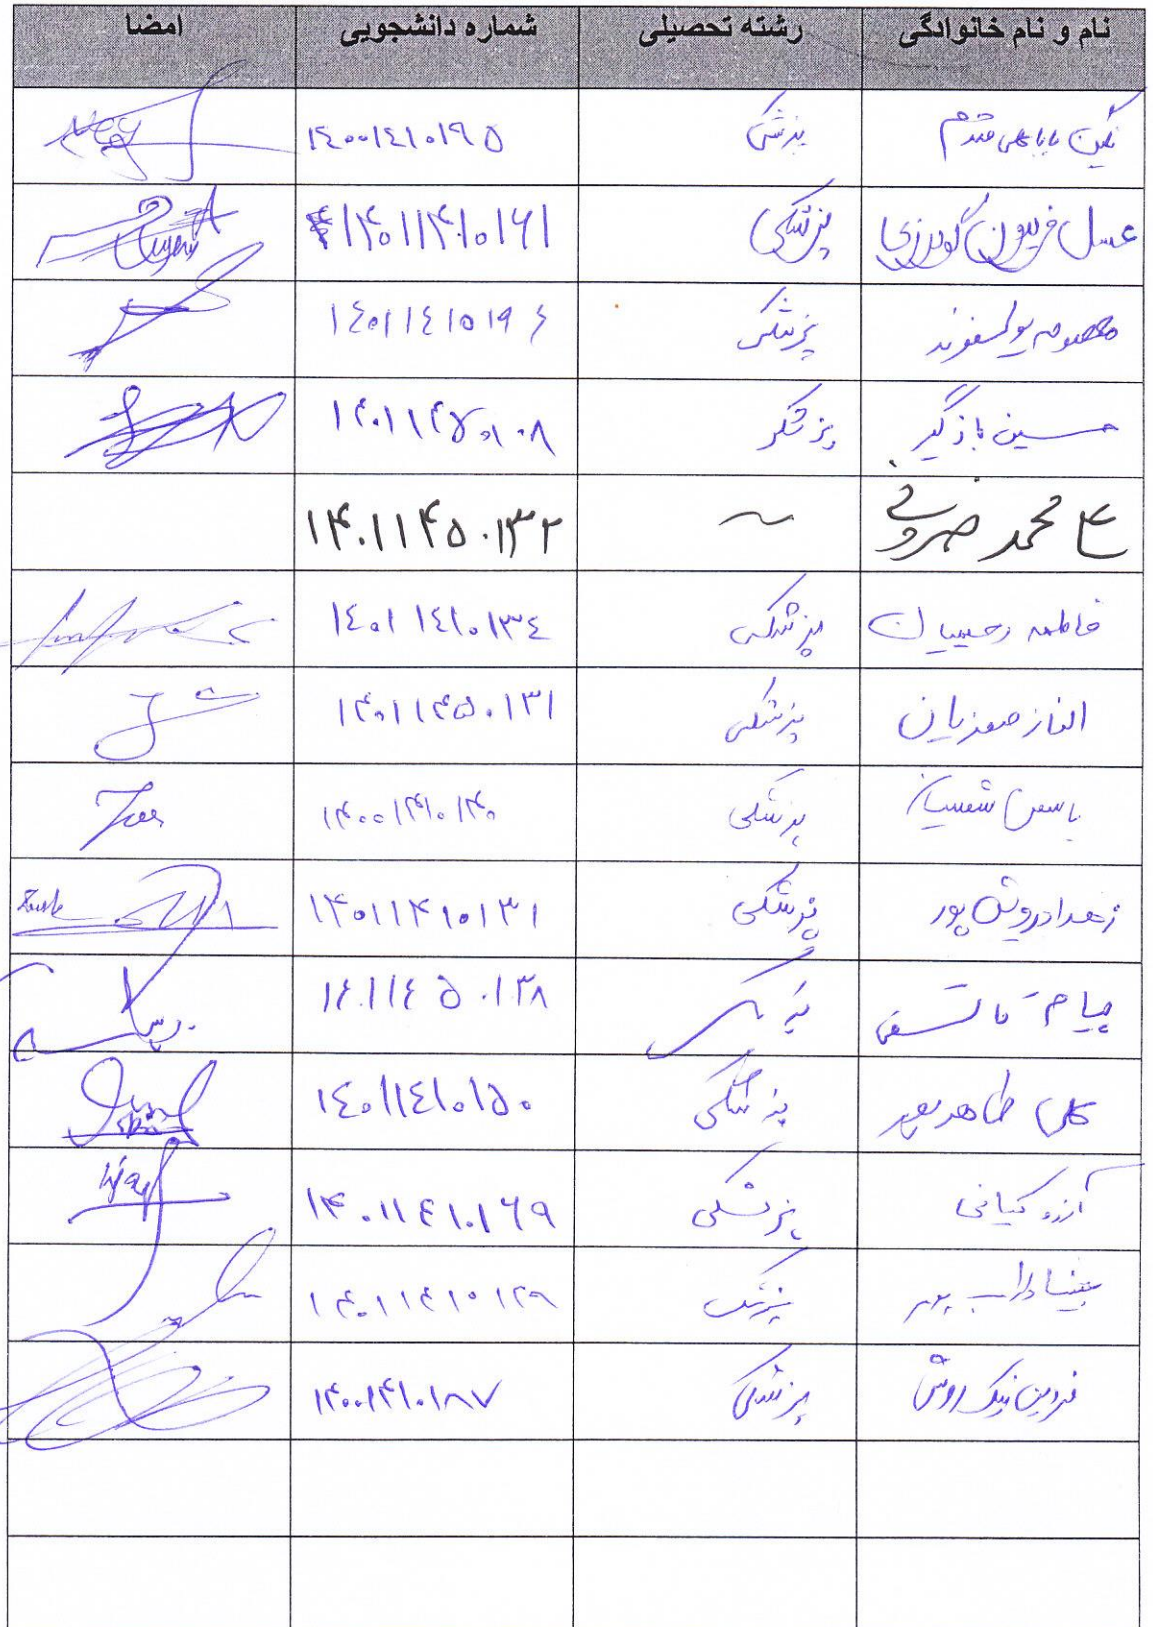 نام و نام خانوادگی رشته تحصیلی شماره دانشجویی امضا
نگین بابایی مقدم پزشکی ۱۴۰۰۱۴۱۰۱۹۵
عسل فریدون گودرزی پزشکی ۱۴۰۱۱۴۱۰۱۶۱
معصومه یوسفوند پزشکی ۱۴۰۱۱۴۱۰۱۹۴
حسین بازگیر پزشکی ۱۴۰۱۱۴۵۰۱۰۸
محمد ۱۴۰۱۱۴۵۰۱۳۲
فاطمه رحیمیان پزشکی ۱۴۰۱۱۴۱۰۱۳۴
الناز صفزیان پزشکی ۱۴۰۱۱۴۵۰۱۳۱
یاسمن شمسیان پزشکی ۱۴۰۰۱۴۱۰۱۴۰
زهرا درویش پور پزشکی ۱۴۰۱۱۴۱۰۱۳۱
پیام پزشکی ۱۴۰۱۱۴۵۰۱۳۸
طاهرپور پزشکی ۱۴۰۱۱۴۱۰۱۵۰
آرزو کیانی پزشکی ۱۴۰۱۱۴۱۰۱۶۹
داراب پور پزشکی ۱۴۰۱۱۴۱۰۱۲۹
فردین نیک روش پزشکی ۱۴۰۰۱۴۱۰۱۸۷